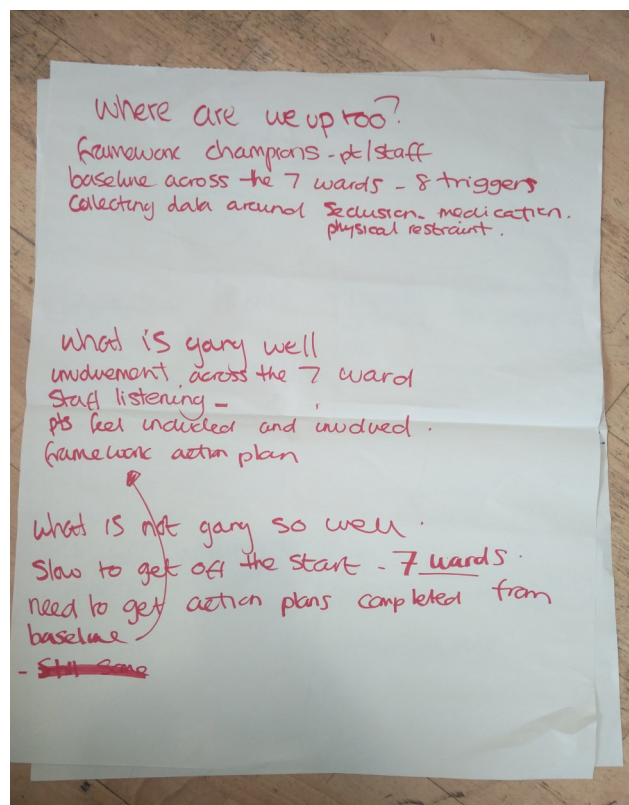 Where are we up too?
framework champions - pt/staff
baseline across the 7 wards - 8 triggers
Collecting data around Seclusion - medication.
physical restraint.
What is going well
involvement across the 7 ward
Staff listening -
pts feel included and involved.
framework action plan
What is not going so well.
Slow to get off the start - 7 wards.
need to get action plans completed from
baseline
- Still some